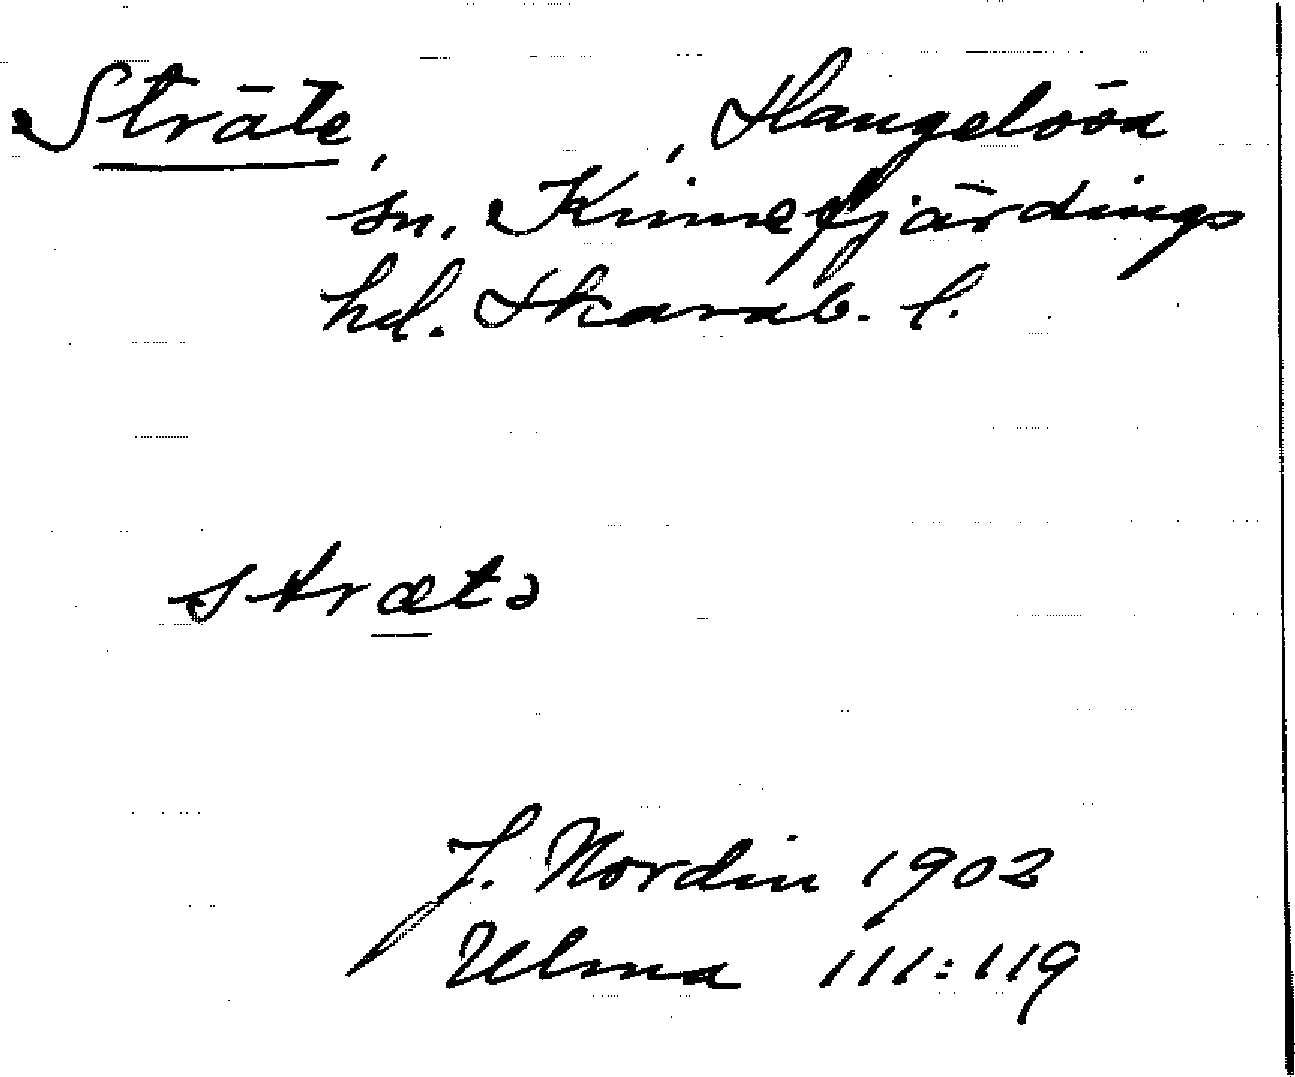 Sträte, , Hangelösa
sn. Kinnefjärdings
hd. Skarab. l.
strætə
J. Nordin 1902
Ulma 111:119